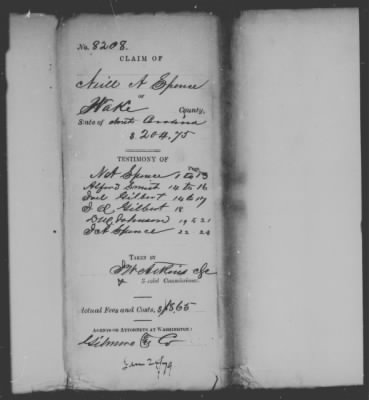 No. 8208.
CLAIM OF
Neill A Spence
OF
Wake County,
State of North Carolina
$ 204.75
TESTIMONY OF
Page
N A Spence 1 to 13
Alfred Smith 14 to 16
Joel Gilbert 16 to 17
J Gilbert 18
Johnson 19 21
J A Spence 22 23
TAKEN BY
Jno Askins
Special Commissioner.
Actual Fees and Costs, $ 18.65
AGENTS OR ATTORNEYS AT WASHINGTON:
Gilmore & Co